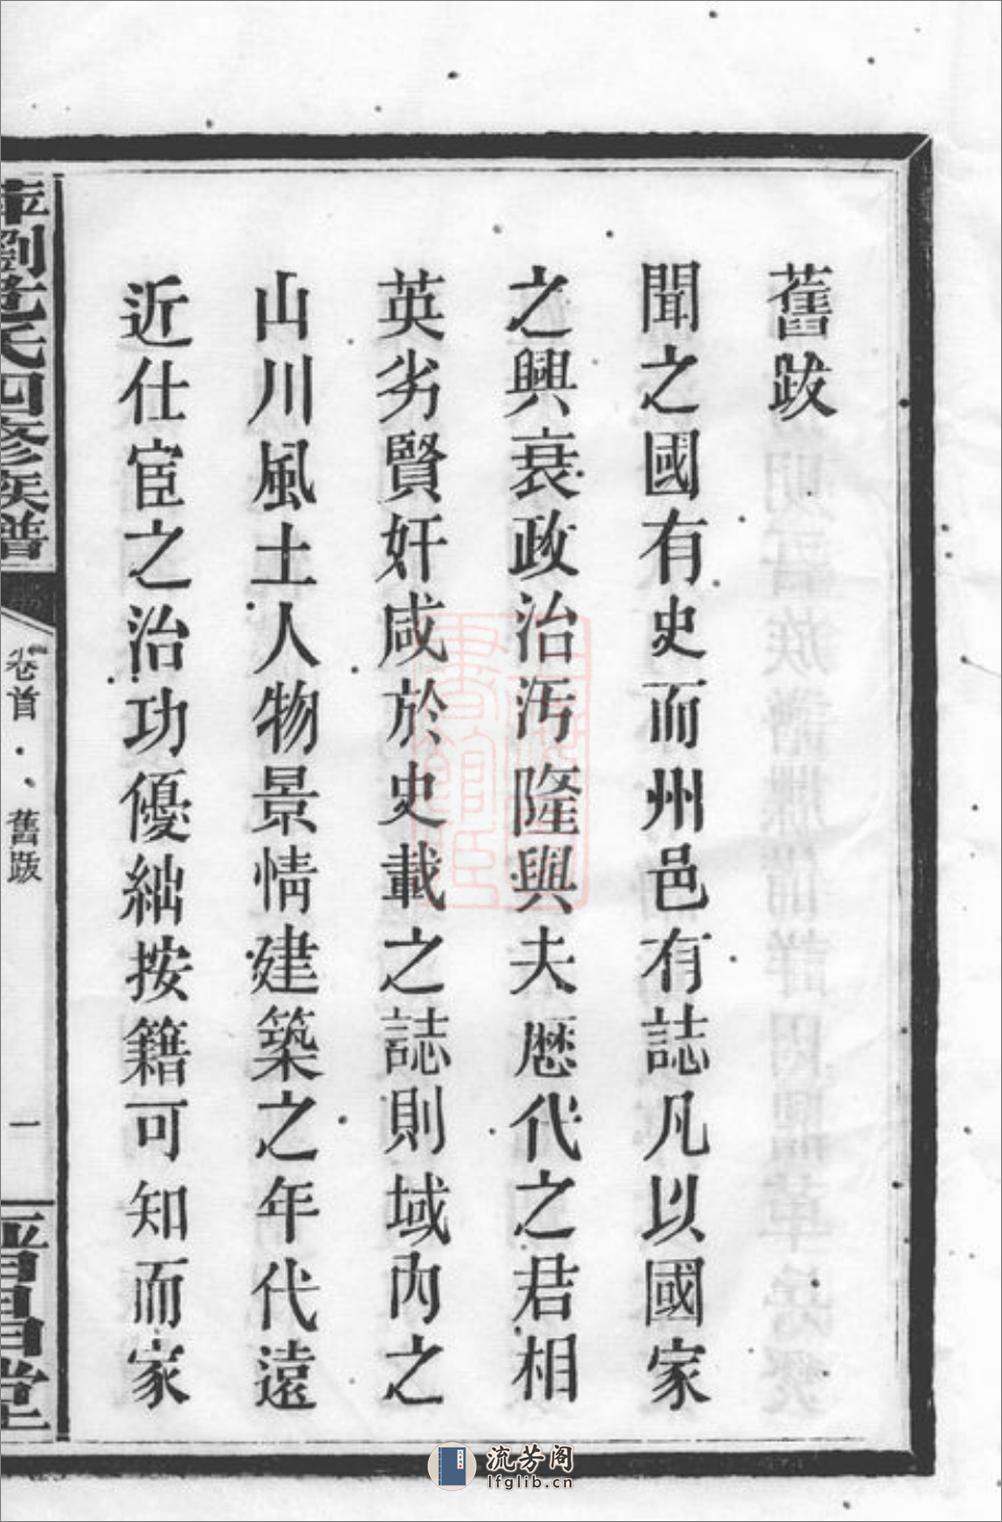 舊跋
聞之國有史而州邑有誌凡以國家
之興衰政治污隆與夫歷代之君相
英劣賢奸咸於史載之誌則域內之
山川風土人物景情建築之年代遠
近仕宦之治功優絀按籍可知而家
劉氏四修族譜
卷首
舊跋
一
堂
流芳阁
lfglib.cn